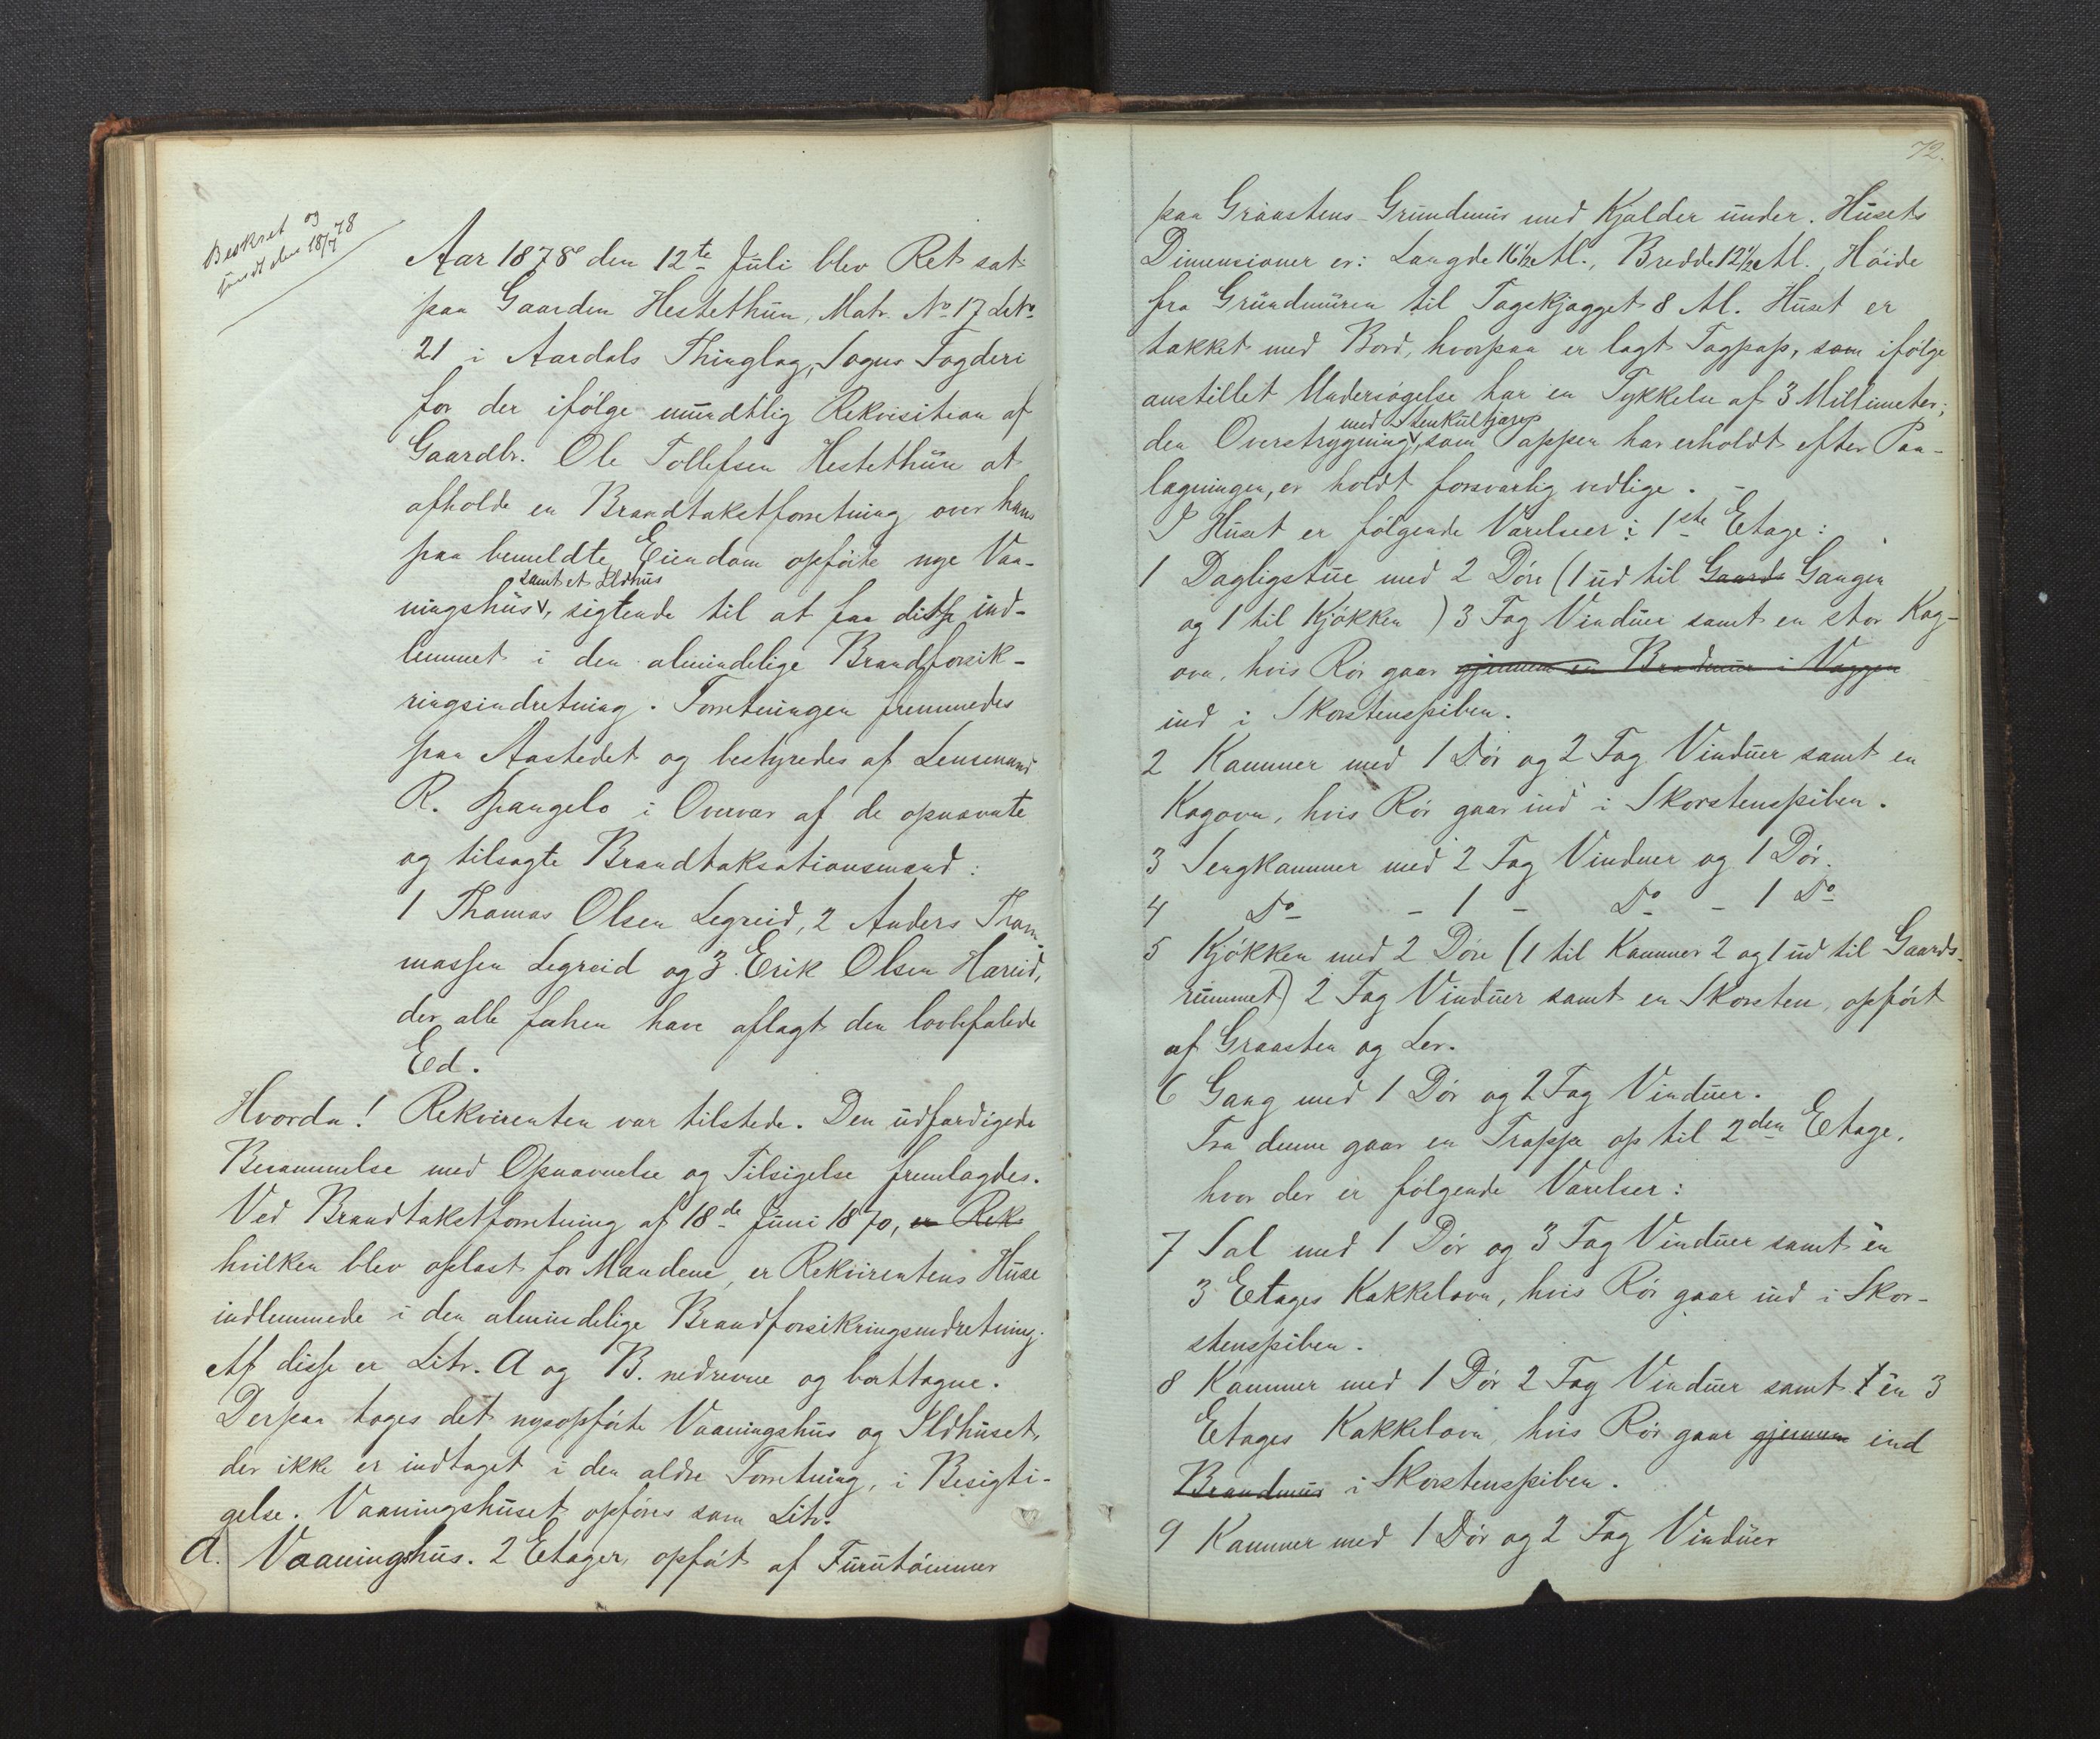 Beskret og
sendt den 18/7 78
Aar 1878 den 12te Juli blev Ret sat
paa Gaarden Hestethun, Matr. No 17 LNo
21 i Aardals Thinglag, Sogns Fogderi
for der ifölge mundtlig Rekvisition af
Gaardbr. Ole Tollefsen Hestethun at
afholde en Brandtakstforretning over hans
paa bemeldte Eiendom opförte nye Vaa-
samt et Ildhus
ningshus, sigtende til at faa disse ind-
lemmet i den almindelige Brandforsik-
ringsindretning. Forretningen fremmedes
paa Aastedet og bestyredes af Lensmand
R. Hjangelo i Overvær af de opnævnte
og tilsagte Brandtaksationsmænd:
1 Thomas Olsen Legreid, 2 Anders Thom-
massen Legreid og 3. Erik Olsen Hareid,
der alle forhen have aflagt den lovbefalede
Ed.
Hvorda! Rekvirenten var tilstede. Den udfærdigede
Berammelse med Opnævnelse og Tilsigelse fremlagdes.
Ved Brandtakstforretning af 18de Juni 1870, er Rek
hvilken blev oplæst for Mændene, er Rekvirentens Huse
indlemmede i den almindelige Brandforsikringsindretning.
Af disse er Litr. A og B. nedrevne og borttagne.
Derpaa toges det nyopförte Vaaningshus og Ildhuset,
der ikke er indtaget i den ældre Forretning, i Besigti-
gelse. Vaaningshuset opföres som Litr.
A. Vaaningshus. 2 Etager, opfört af Furutömmer
72.
paa Graastens Grundmur med Kjælder under. Husets
Dimensioner er: Længde 16 1/2 Al., Bredde 12 1/2 Al., Höide
fra Grundmuren til Tagskjægget 8 Al. Huset er
takket med Bord, hvorpaa er lagt Tagpap, som ifölge
anstillet Undersögelse har en Tykkelse af 3 Millimeter;
med Stenkultjære
den Overstrygning, som Pappen har erholdt efter Paa-
lægningen, er holdt forsvarlig vedlige. -
I Huset er fölgende Værelser i 1ste Etage:
1 Dagligstue med 2 Döre (1 ud til Gaards Gangen
og 1 til Kjökken) 3 Fag Vinduer samt en stor Kog-
ovn, hvis Rör gaar gjennem en Brandmur i Væggen
ind i Skorstenspiben.
2 Kammer med 1 Dör og 2 Fag Vinduer samt en
Kogovn, hvis Rör gaar ind i Skorstenspiben.
3 Sengkammer med 2 Fag Vinduer og 1 Dör.
4 Do - 1 - Do - 1 Do
5 Kjökken med 2 Döre (1 til Kammer 2 og 1 ud til Gaards-
rummet) 2 Fag Vinduer samt en Skorsten, opfört
af Graasten og Ler.
6 Gang med 1 Dör og 2 Fag Vinduer.
Fra denne gaar en Trappe op til 2den Etage,
hvor der er fölgende Værelser:
7 Sal med 1 Dör og 3 Fag Vinduer samt en
3 Etages Kakkelovn, hvis Rör gaar ind i Skor-
stenspiben.
8 Kammer med 1 Dör 2 Fag Vinduer samt 1 en 3
Etages Kakkelovn, hvis Rör gaar gjennem ind
Brandmur i Skorstenspiben.
9 Kammer med 1 Dör og 2 Fag Vinduer